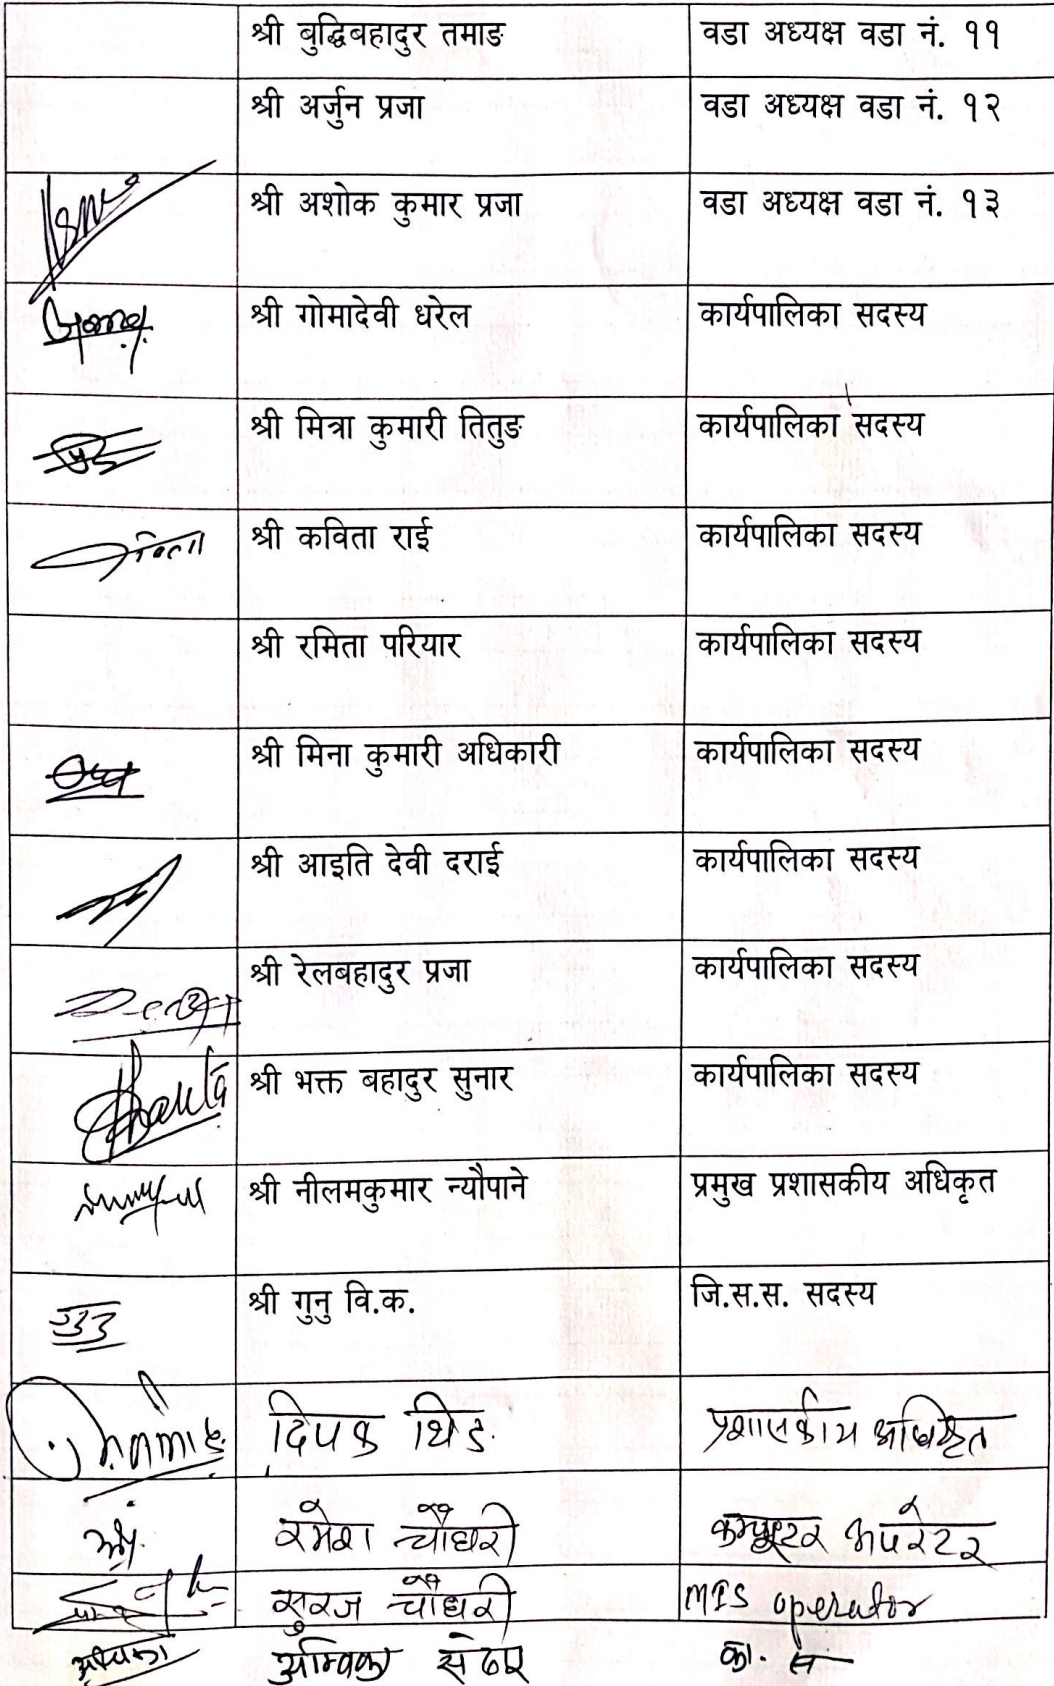 श्री बुद्धिबहादुर तमाङ वडा अध्यक्ष वडा नं. ११
श्री अर्जुन प्रजा वडा अध्यक्ष वडा नं. १२
श्री अशोक कुमार प्रजा वडा अध्यक्ष वडा नं. १३
श्री गोमादेवी धरेल कार्यपालिका सदस्य
श्री मित्रा कुमारी तितुङ कार्यपालिका सदस्य
श्री कविता राई कार्यपालिका सदस्य
श्री रमिता परियार कार्यपालिका सदस्य
श्री मिना कुमारी अधिकारी कार्यपालिका सदस्य
श्री आइति देवी दराई कार्यपालिका सदस्य
श्री रेलबहादुर प्रजा कार्यपालिका सदस्य
श्री भक्त बहादुर सुनार कार्यपालिका सदस्य
श्री नीलमकुमार न्यौपाने प्रमुख प्रशासकीय अधिकृत
श्री गुनु वि.क. जि.स.स. सदस्य
दिपक थिङ प्रशासकीय अधिकृत
रमेश चौधरी कम्प्यूटर अपरेटर
सुरज चौधरी MIS operator
अम्बिका का. स